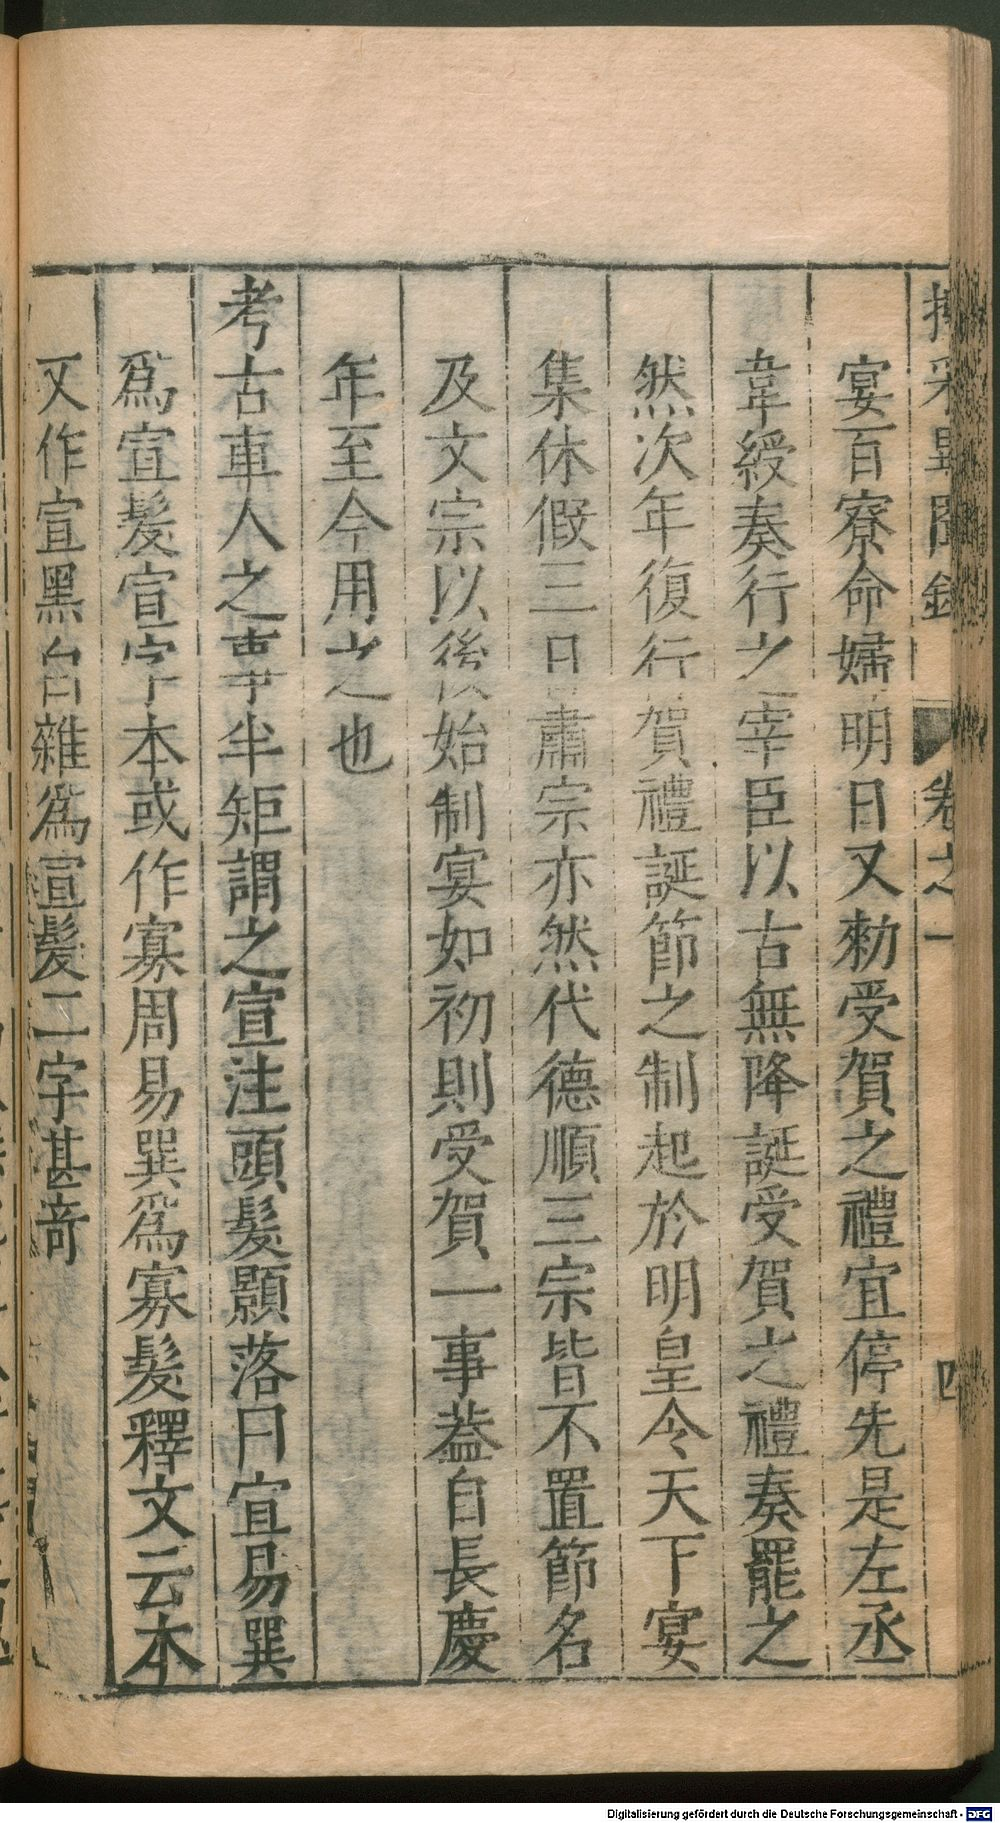 采異聞錄 卷之一 四
宴百寮命婦明日又勑受賀之禮宜停先是左丞
韋綬奏行之宰臣以古無降誕受賀之禮奏罷之
然次年復行賀禮誕節之制起於明皇令天下宴
集休假三日肅宗亦然代德順三宗皆不置節名
及文宗以後始制宴如初則受賀一事葢自長慶
年至今用之也
考古車人之事半矩謂之宣注頭髮顥落曰宣易巽
爲宣髮宣字本或作寡周易巽爲寡髮釋文云本
又作宣黑白雜爲宣髮二字甚奇
Digitalisierung gefördert durch die Deutsche Forschungsgemeinschaft - DFG